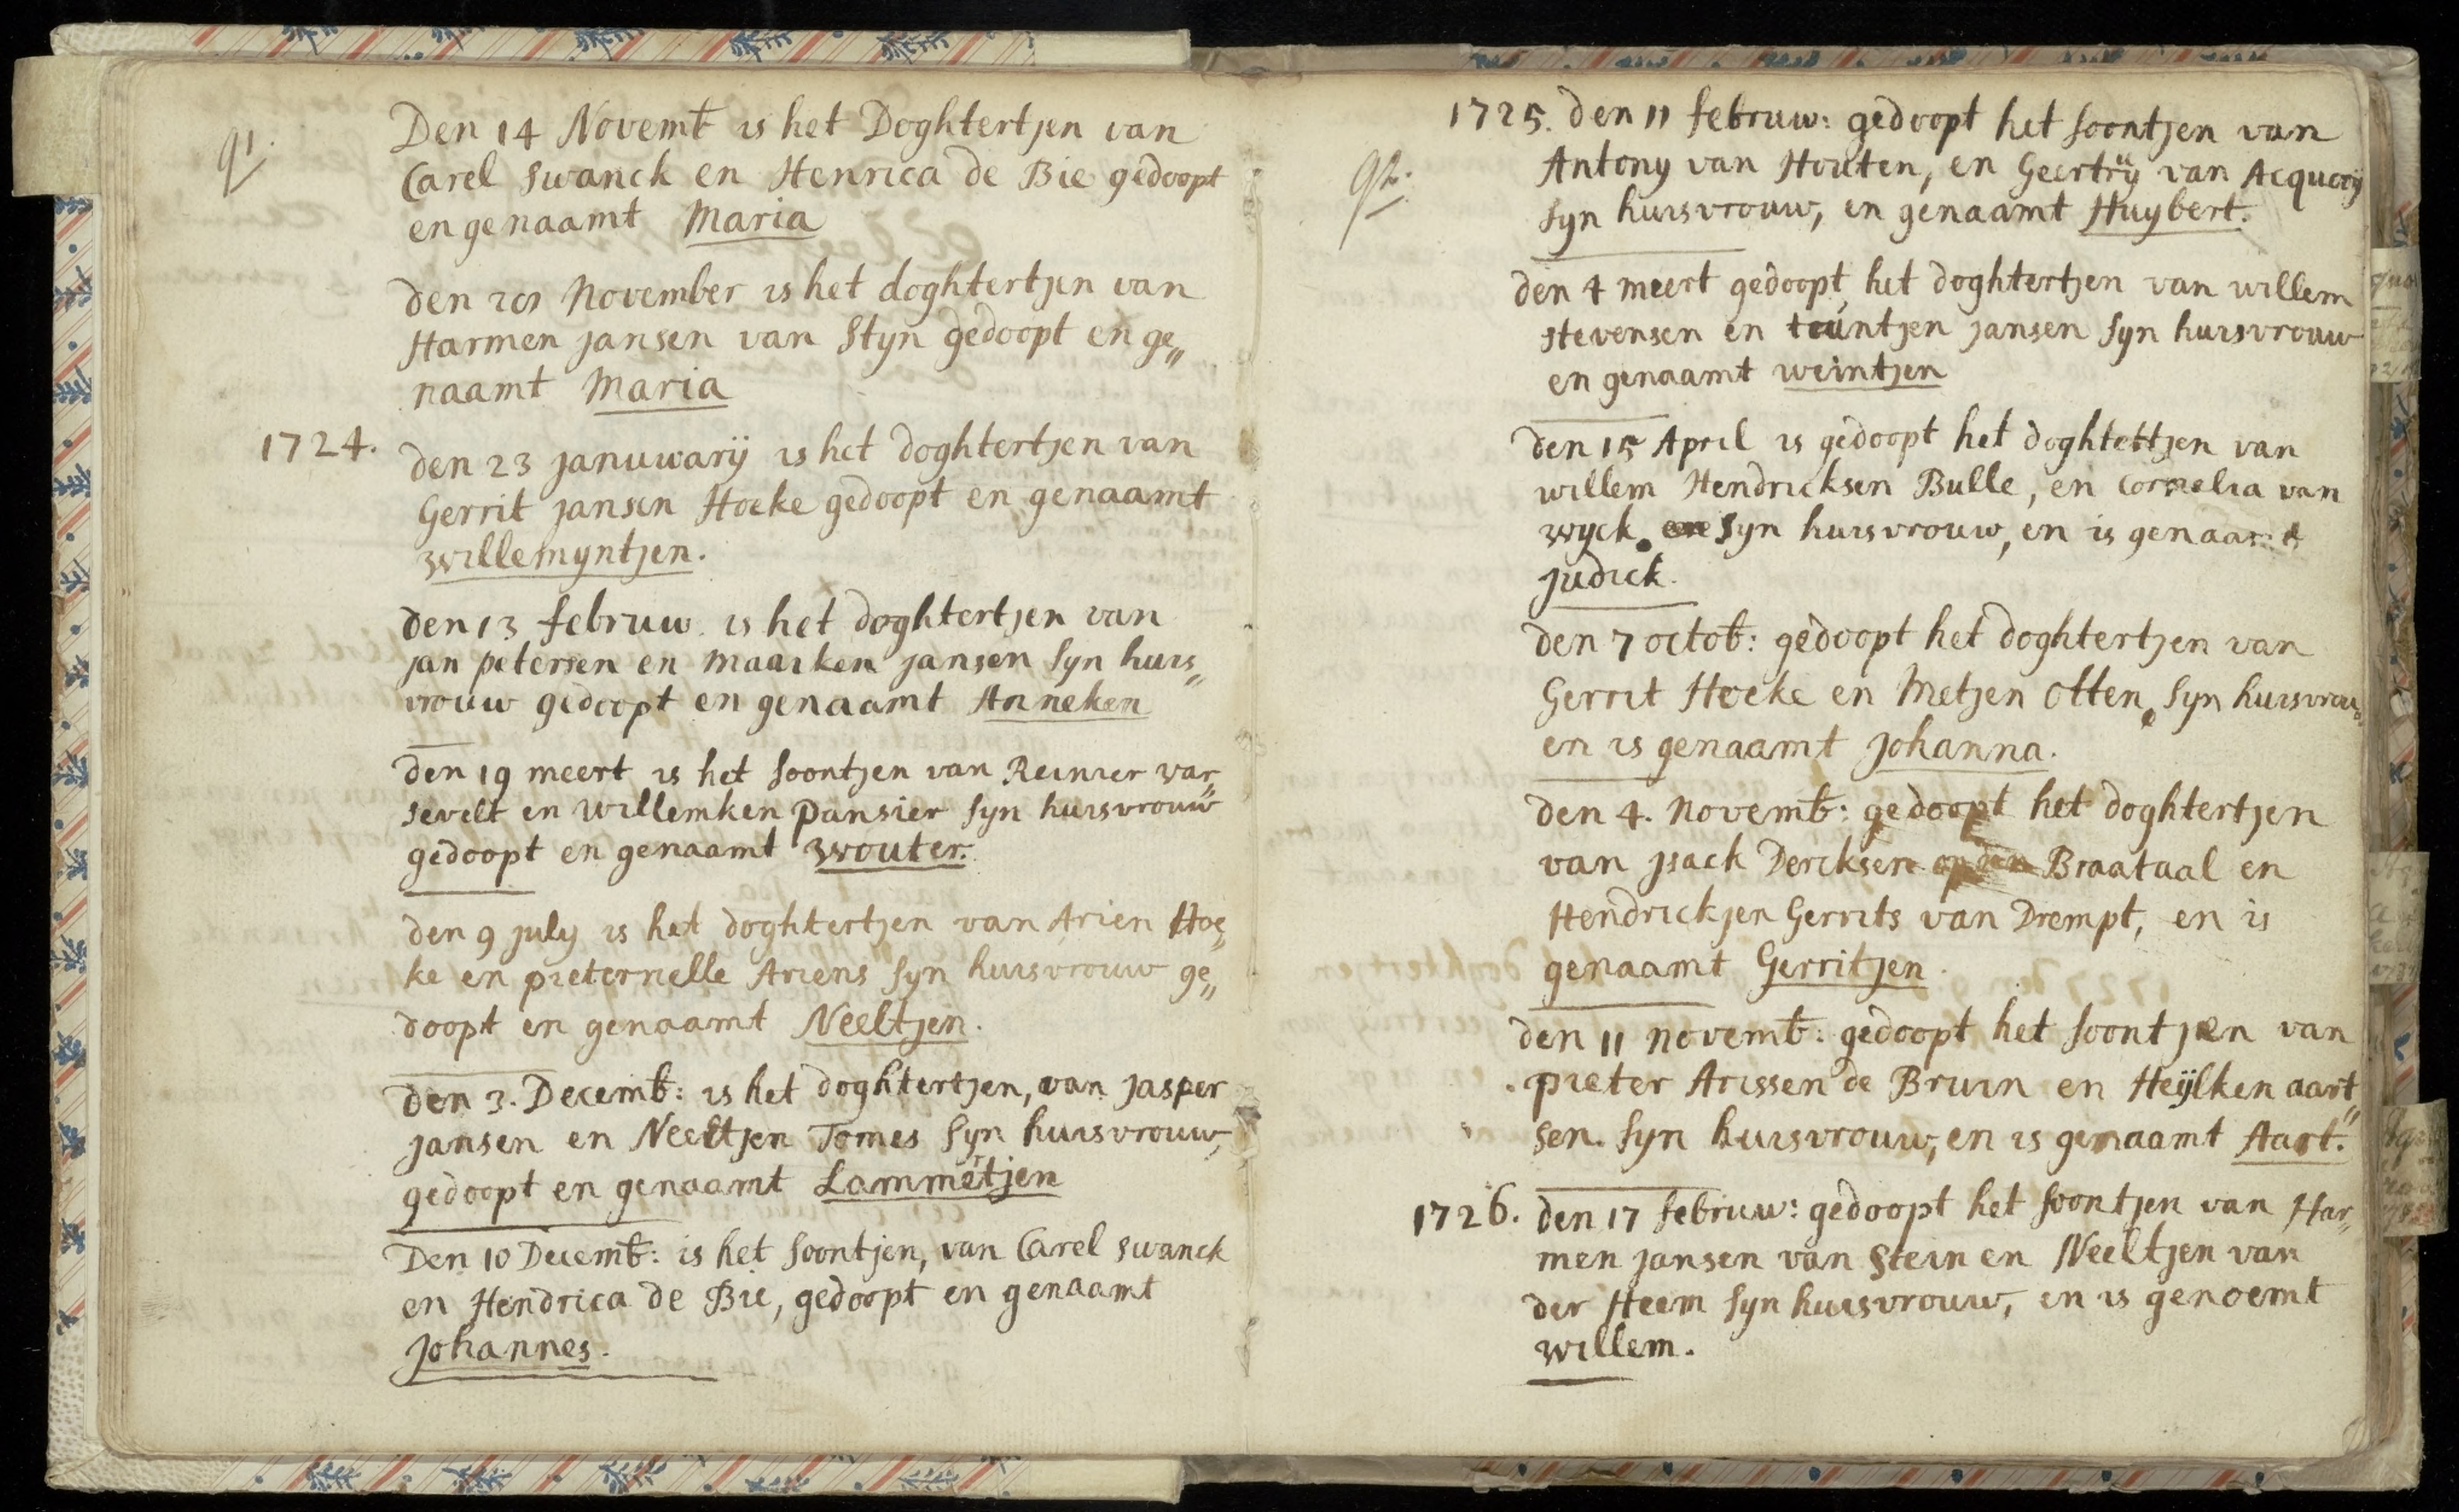 91.
Den 14 Novemb is het Doghtertjen van
Carel Swanck en Henrica de Bie gedoopt
en genaamt Maria
Den November is het doghtertjen van
Harmen Jansen van Styn gedoopt en ge„
naamt Maria
1724. den 23 januwarij is het doghtertjen van
Gerrit jansen Hoeke gedoopt en genaamt
willemyntjen.
den 13 februw. is het doghtertjen van
jan petersen en Maarken jansen syn huis„
vrouw gedoopt en genaamt Anneken
den 19 meert is het soontjen van Reinier var„
sevelt en willemken Pansier syn huisvrouw
gedoopt en genaamt wouter.
den 9 july is het doghtertjen van Arien Hoe„
ke en pieternelle Ariens syn huisvrouw ge„
doopt en genaamt Neeltjen.
den 3. Decemb: is het doghtertjen, van Jasper
jansen en Neeltjen Tomes syn huisvrouw,
gedoopt en genaamt Lammertjen
Den 10 Decemb: is het soontjen, van Carel swanck
en Hendrica de Bie, gedoopt en genaamt
Johannes.
92.
1725. den 11 februw: gedoopt het soontjen van
Antony van Houten, en Geertrÿ van Acquoÿ
syn huisvrouw, en genaamt Huybert.
den 4 meert gedoopt het doghtertjen van willem
stevensen en teuntjen jansen syn huisvrouw
en genaamt weintjen
den 15 April is gedoopt het doghtertjen van
willem Hendricksen Bulle, en Cornelia van
wyck syn huisvrouw, en is genaamt
judick.
den 7 octob: gedoopt het doghtertjen van
Gerrit Hoeke en Metjen Otten, syn huisvrou„
en is genaamt Johanna.
den 4. Novemb: gedoopt het doghtertjen
van jsack Dercksen op den Braataal en
Hendrickjen Gerrits van Drempt, en is
genaamt Gerritjen.
den 11 novemb: gedoopt het soontjen van
pieter Arissen de Bruin en Heijlken aart„
sen. syn huisvrouw, en is genaamt Aart.
1726. den 17 februw: gedoopt het soontjen van Har„
men jansen van Stein en Neeltjen van
der Heem syn huisvrouw, en is genoemt
willem.